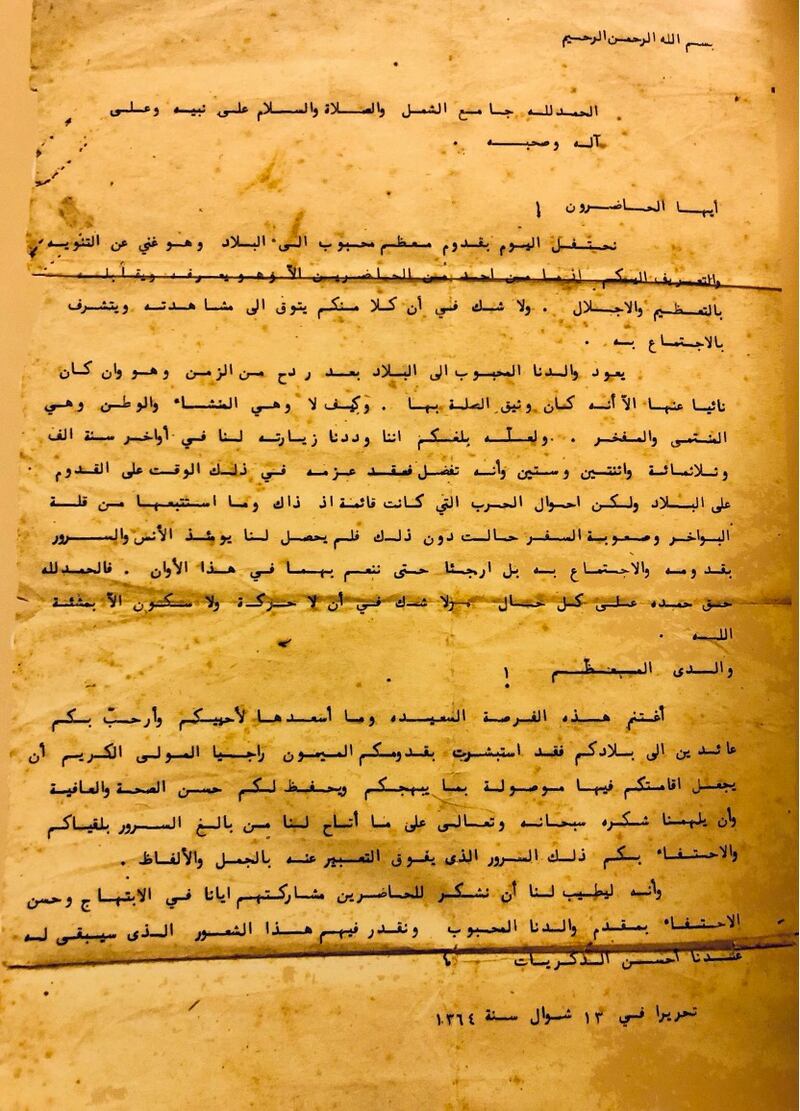 بسم الله الرحمن الرحيم
الحمدلله جامع الشمل والصلاة والسلام على نبيه وعلى
آله وصحبه .
أيها الحاضرون !
نحتفل اليوم بقدوم معظم محبوب الى البلاد وهو غني عن التنويه
والتعريف اليكم اذ ما من احد من الحاضرين الآ وهو يعرفه ويقابله
بالتعظيم والاجلال . ولا شك في أن كلا منكم يتوق الى مشاهدته ويتشرف
بالاجتماع به .
يعود والدنا المحبوب الى البلاد بعد ردح من الزمن وهو وان كان
نائيا عنها الآ أنه كان وثيق الصلة بها . وكيف لا وهي المنشاء والوطن وهي
المنتمى والمفخر . ولعلّه بلغكم اننا وددنا زيارته لنا في أواخر سنة الف
وثلاثمائة واثنتين وستين وأنه تفضل فعقد عزمه في ذلك الوقت على القدوم
على البلاد ولكن احوال الحرب التي كانت قائمة اذ ذاك وما استتبعها من قلة
البواخر وصعوبة السفر حالت دون ذلك فلم يحصل لنا يومئذ الأنس والسرور
بقدومه والاجتماع به بل ارجئا حتى ننعم بهما في هذا الأوان . فالحمدلله
حق حمده على كل حال . ولا شك في أن لا حركة ولا سكون الآ بمشئة
الله .
والدى المعظم !
أغتنم هذه الفرصة السعيده وما أسعدها لأحييكم وأرحبّ بكم
عائدين الى بلادكم فقد استبشرت بقدومكم الميمون راجيا المولى الكريم أن
يجعل اقامتكم فيها موصولة بما يبهجكم ويحفظ لكم حسن الصحة والعافية
وأن يلهمنا شكره سبحانه وتعالى على ما أتاح لنا من بالغ السرور بلقياكم
والاحتفاء بكم ذلك السرور الذى يفوق التعبير عنه بالجمل والألفاظ .
وأنه ليطيب لنا أن نشكر للحاضرين مشاركتهم ايانا في الابتهاج وحسن
الاحتفاء بمقدم والدنا المحبوب ونقدر فيهم هذا الشعور الذى سيبقى له
عندنا أحسن الذكريات
تحريرا في ١٣ شوال سنة ١٣٦٤